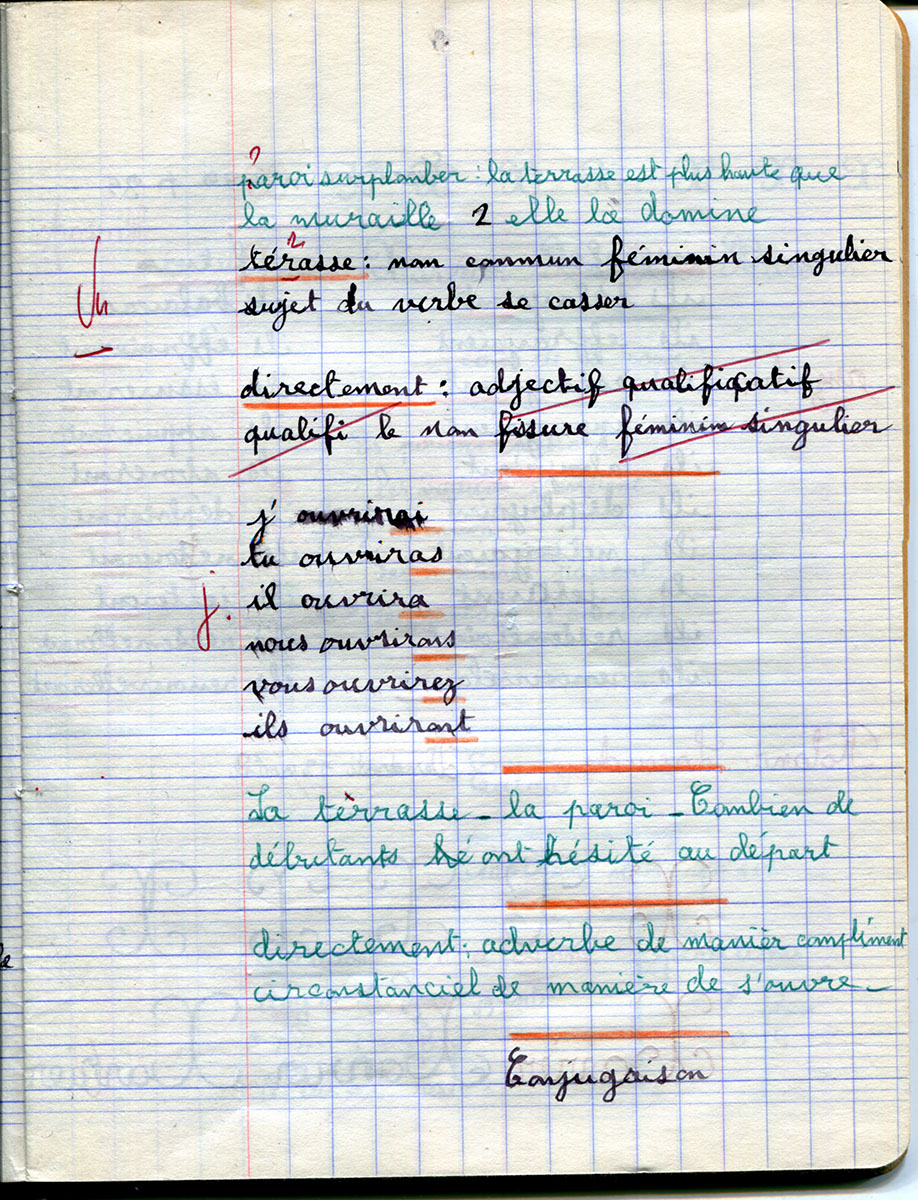 paroi surplomber : la terrasse est plus haute que
la muraille 2 elle la domine
térasse : nom commun féminin singulier
sujet du verbe se casser
Vu
directement : adjectif qualificatif
qualifi le nom fissure féminin singulier
j' ouvrirai
tu ouvriras
j. il ouvrira
nous ouvrirons
vous ouvrirez
ils ouvriront
La terrasse - la paroi - Combien de
débutants hé ont hésité au départ
directement : adverbe de manièr complément
circonstanciel de manière de s'ouvre -
Conjugaison